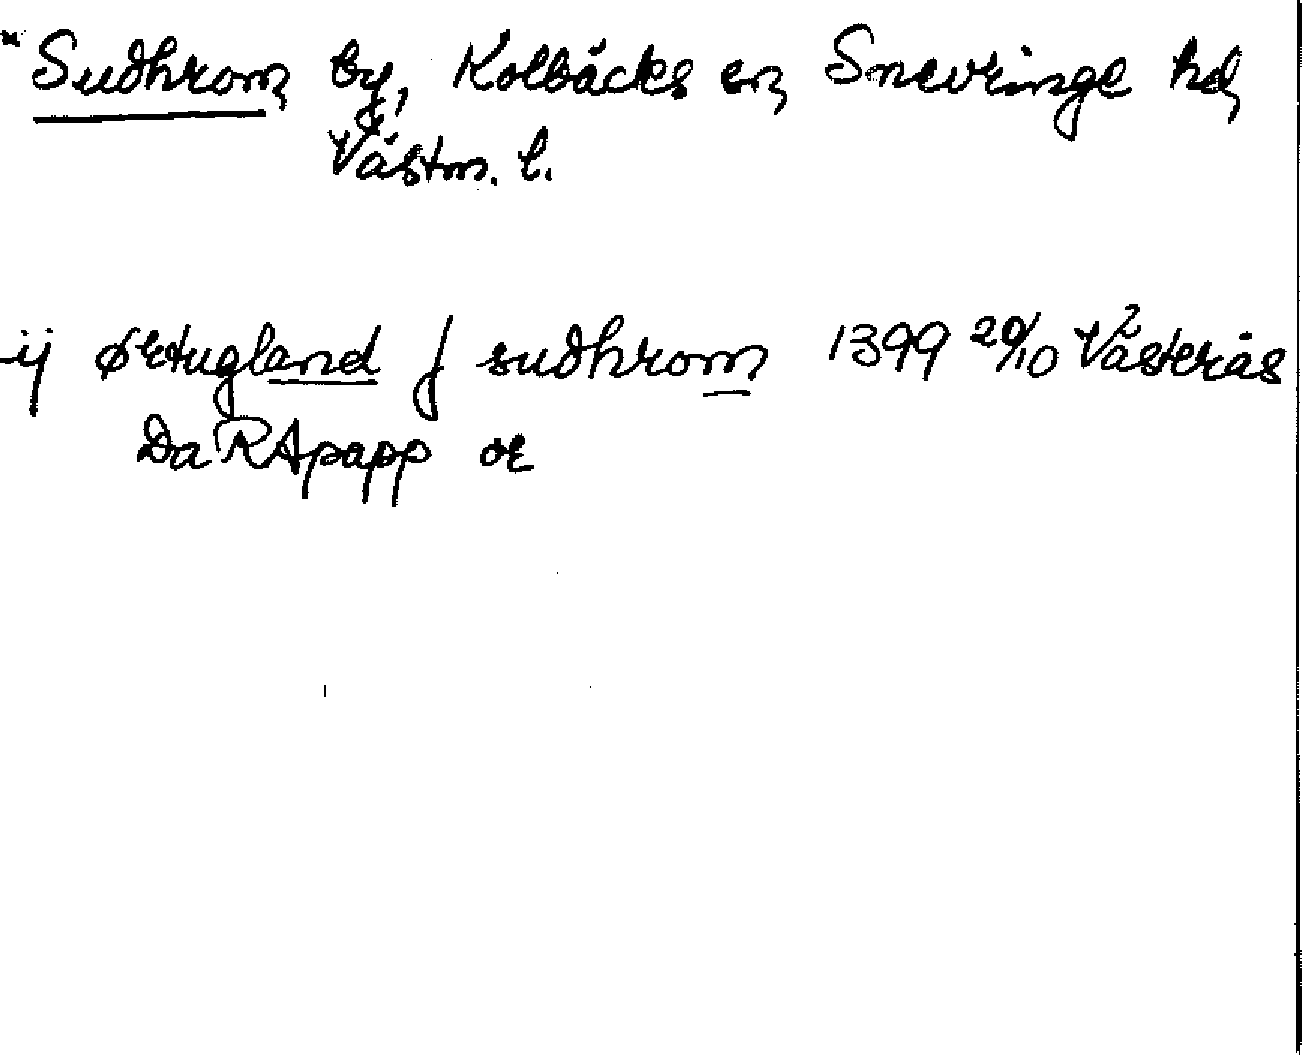 *Sudhrom by, Kolbäcks sn, Snevringe hd,
Västm. l.
ij ørtugland j sudhrom 1399 20/10 Västerås
Da RApapp or